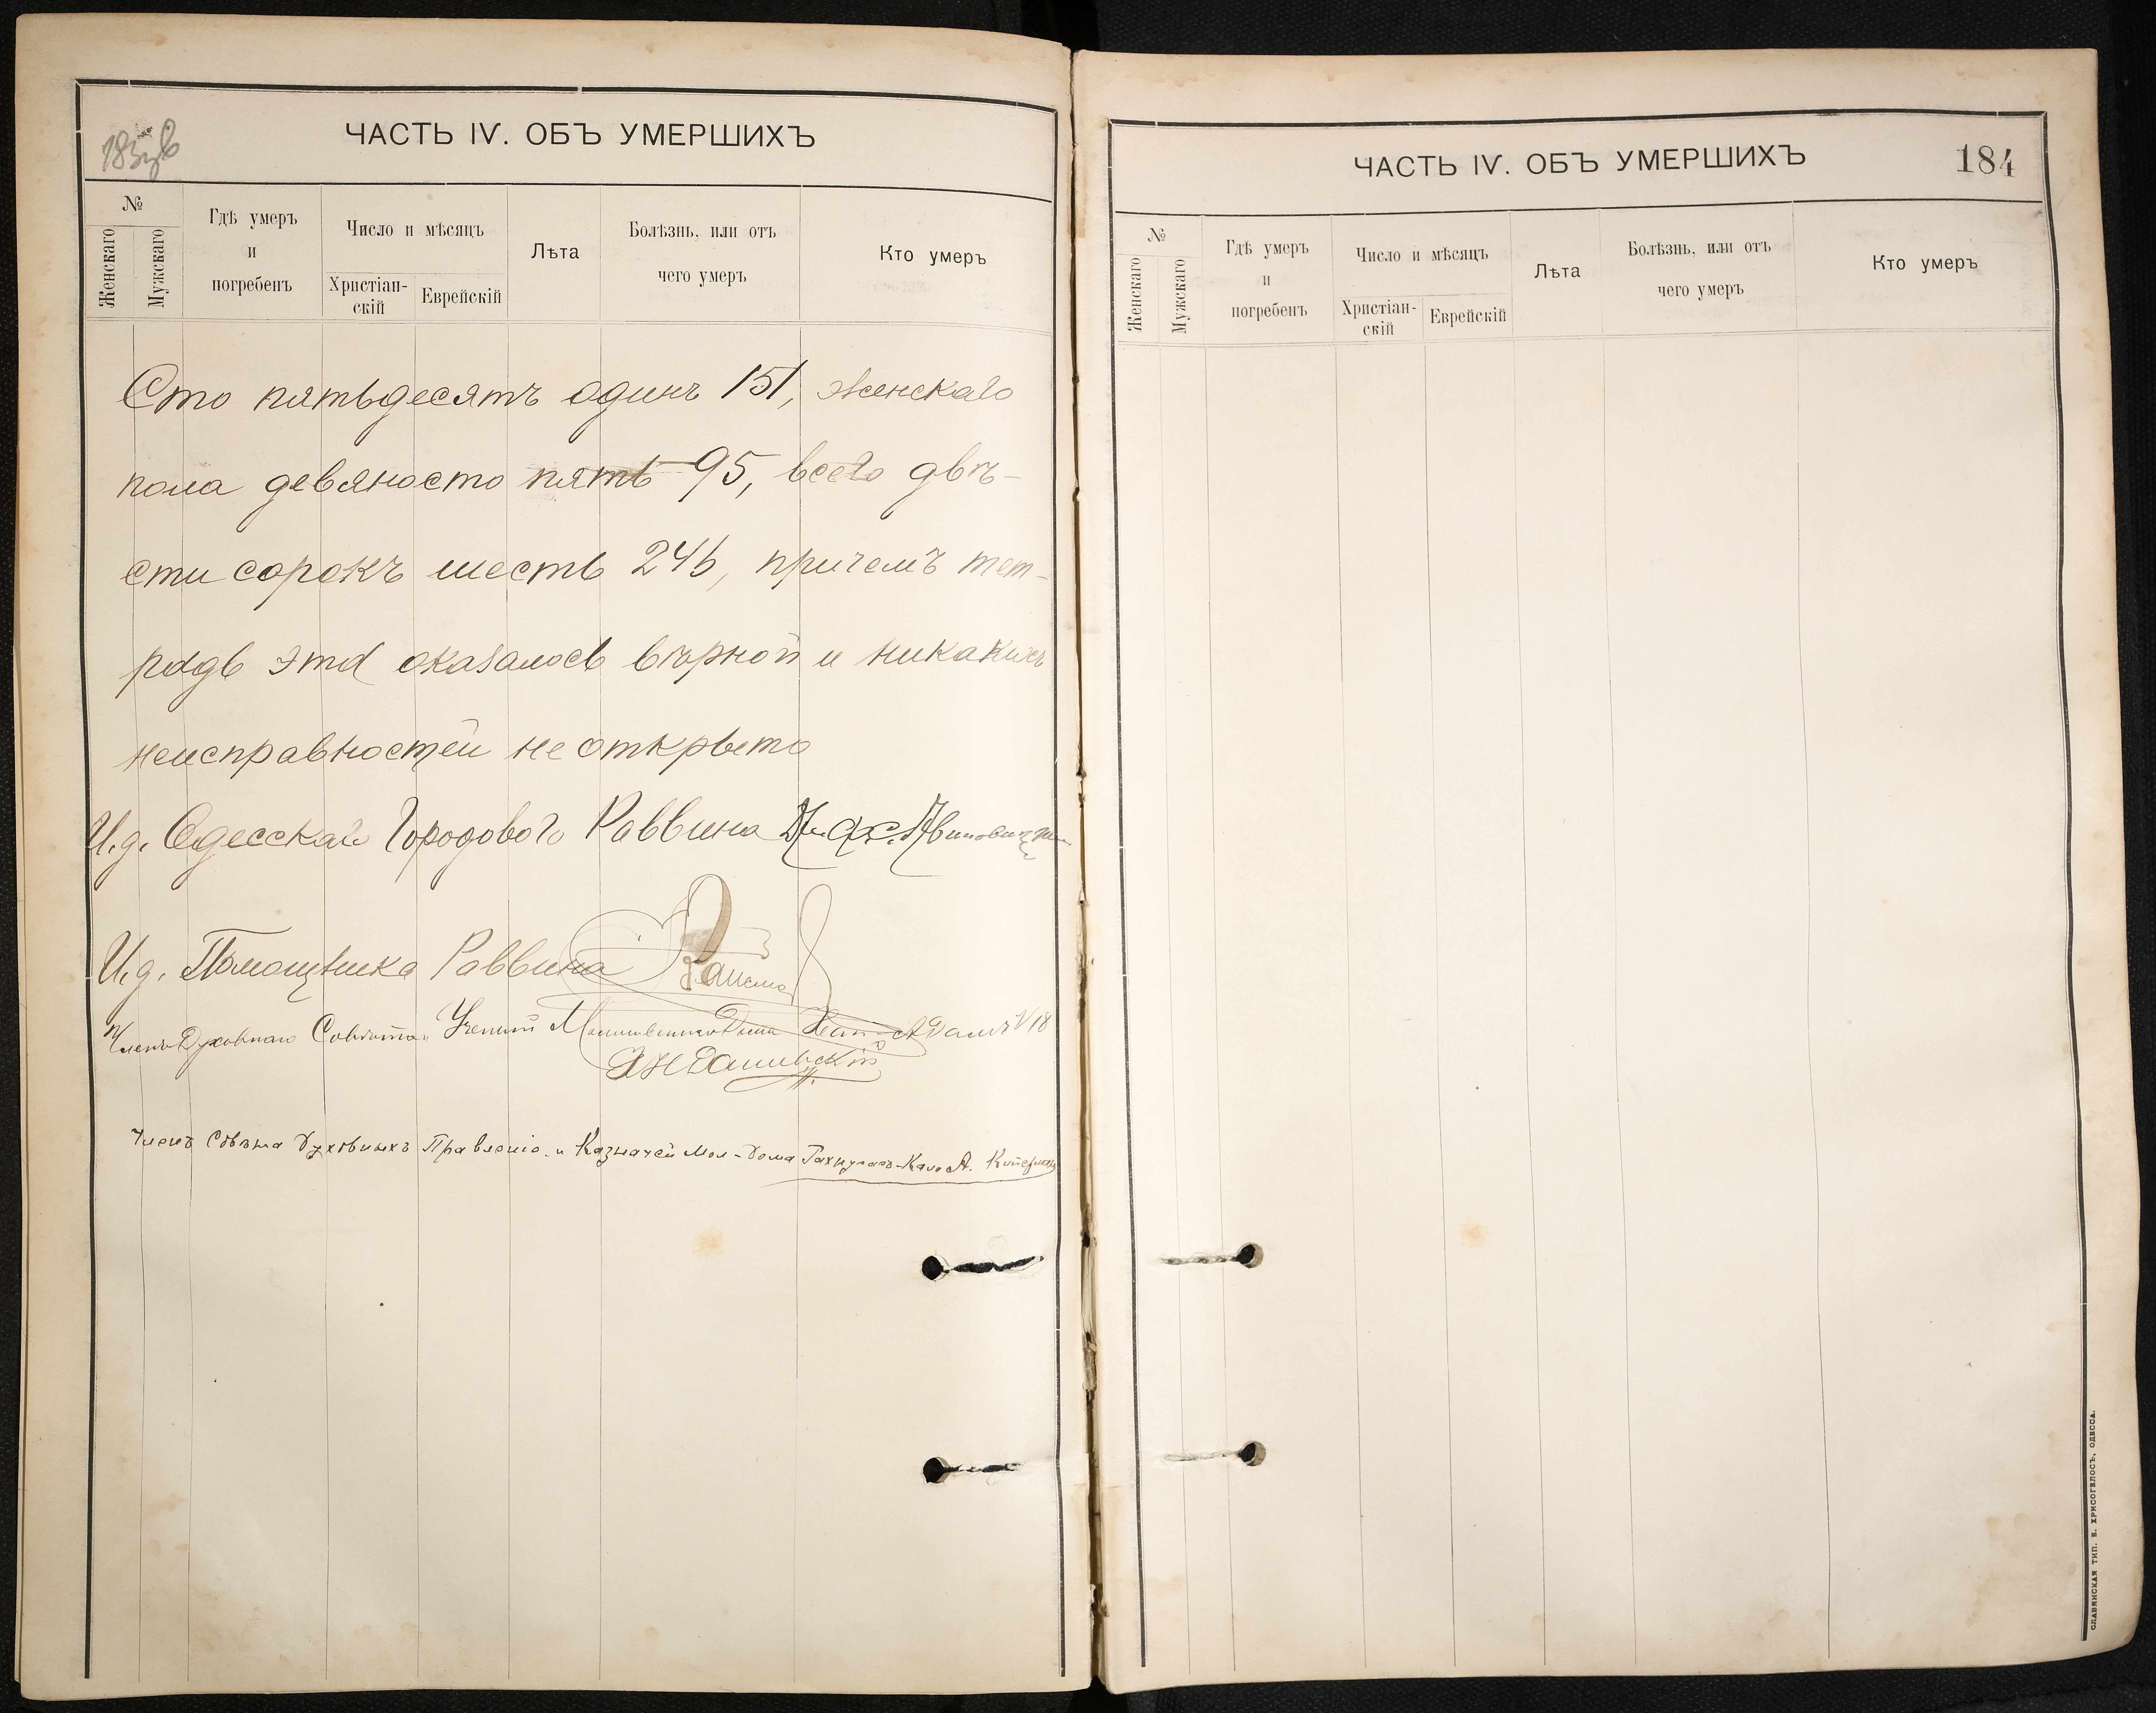 183об
ЧАСТЬ IV. ОБЪ УМЕРШИХЪ
№
Женскаго
Мужскаго
Гдѣ умеръ
и
погребенъ
Число и мѣсяцъ
Христіан-
скій
Еврейскій
Лѣта
Болѣзнь, или отъ
чего умеръ
Кто умеръ
Сто пятьдесятъ одинъ 151, женскаго
пола девяносто пять 95, всего двѣ-
сти сорокъ шесть 246, причемъ тет-
радь эта оказалось вѣрной и никакихъ
неисправностей не открыто
И.д. Одесскаго Городового Раввина
И.д. Помощника Раввина
Членъ Духовнаго Совѣта, Ученый
Членъ Совѣта Духовныхъ Правленіе и Казначей Мол-Дома
ЧАСТЬ IV. ОБЪ УМЕРШИХЪ
184
№
Женскаго
Мужскаго
Гдѣ умеръ
и
погребенъ
Число и мѣсяцъ
Христіан-
скій
Еврейскій
Лѣта
Болѣзнь, или отъ
чего умеръ
Кто умеръ
СЛАВЯНСКАЯ ТИП. Е. ХРИСОГЕЛОСЪ, ОДЕССА.